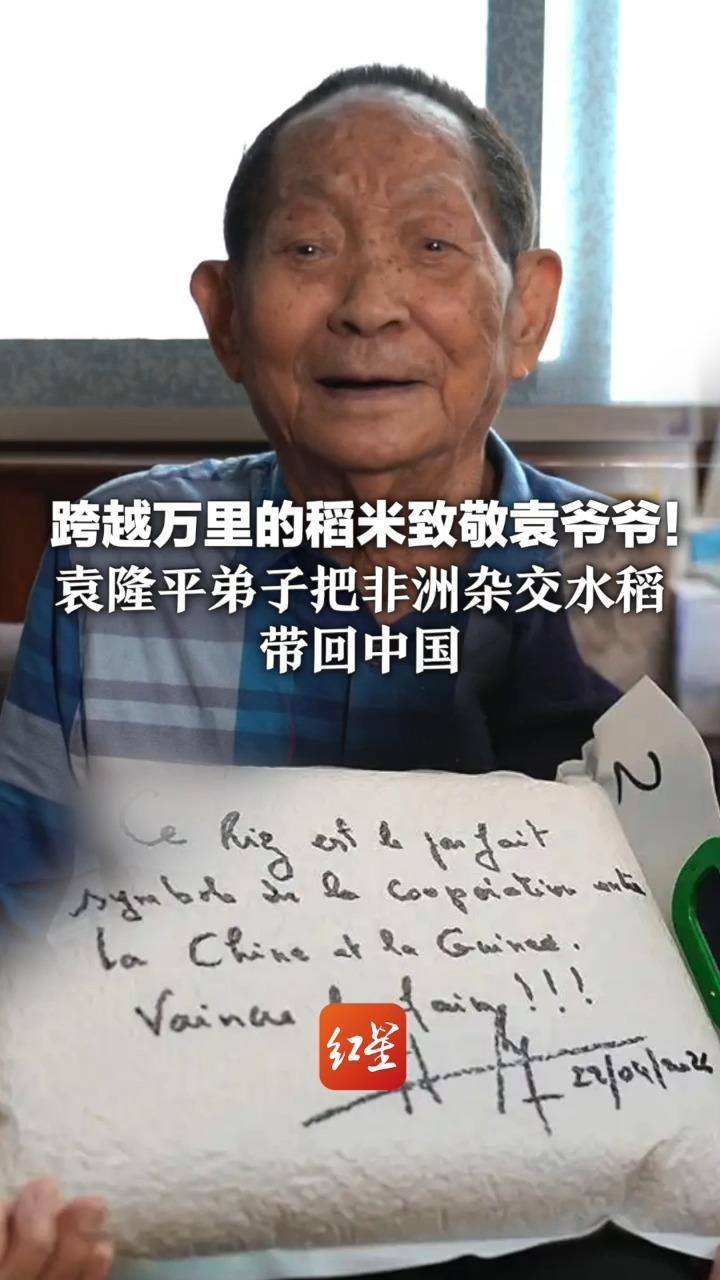 跨越万里的稻米致敬袁爷爷!
袁隆平弟子把非洲杂交水稻
带回中国
N
Ce Riz est le parfait
symbole de la coopération entre
la Chine et la Guinée.
Vaincre la faim !!!
红星
22/04/